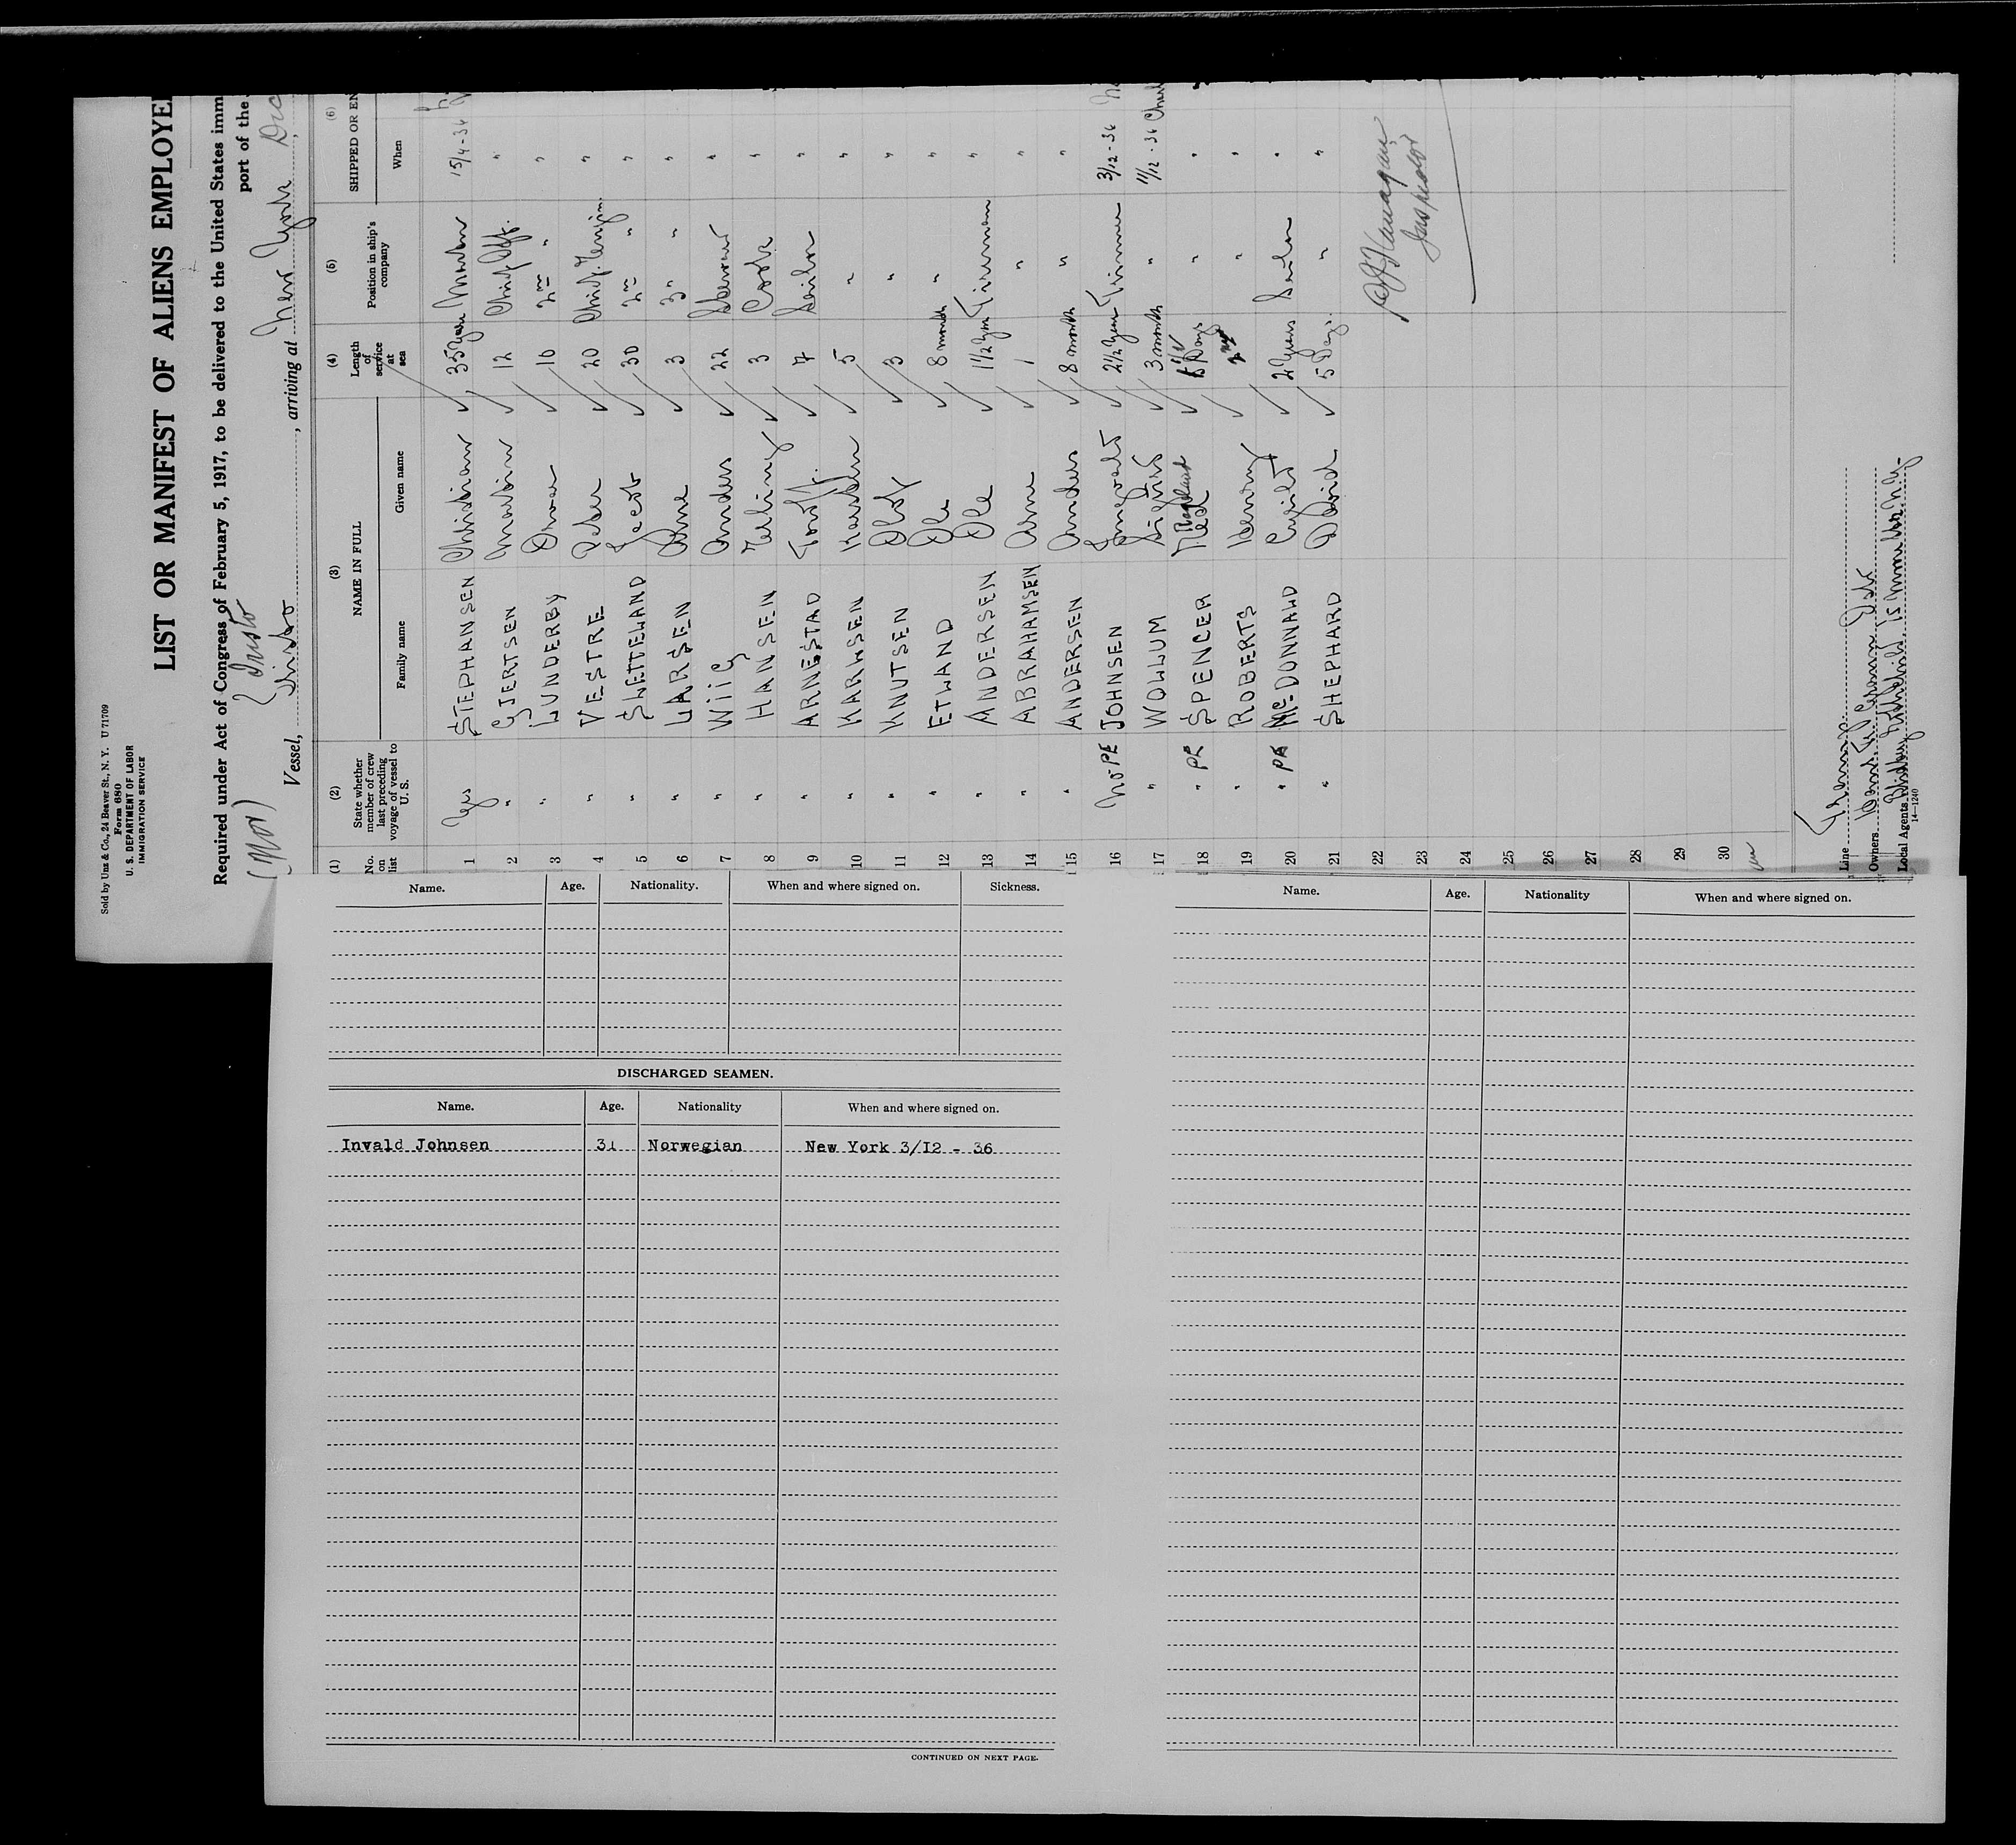 Sold by Unz & Co., 24 Beaver St., N. Y. U 71709
Form 680
U. S. DEPARTMENT OF LABOR
IMMIGRATION SERVICE
LIST OR MANIFEST OF ALIENS EMPLOYE
Required under Act of Congress of February 5, 1917, to be delivered to the United States imm
port of the
(Nor)
Vessel, , arriving at New York, Dec
(1) (2) (3) (4) (5) (6)
No. on list
State whether member of crew last preceding voyage of vessel to U. S.
NAME IN FULL
Family name Given name
Length of service at sea
Position in ship's company
SHIPPED OR EN
When
1 Yes STEPHANSEN Christian 35 years Master 15/4-36
2 " GJERTSEN Martin 12 Chief Off.
3 " LUNDERBY 10 2nd "
4 " VESTRE Peder 20 Chief Engin.
5 " SLETTELAND Jacob 30 2nd "
6 " LARSEN Arne 3 3" "
7 " WiiG Anders 22 Steward "
8 " HANSEN 3 Cook "
9 " ARNESTAD 7 Sailor "
10 " KARLSEN Karsten 5 " "
11 " KNUTSEN Olaf 3 " "
12 " ETLAND Ole 8 month " "
13 " ANDERSEN Ole 1 1/2 year Fireman "
14 " ABRAHAMSEN Arne 1 " "
15 " ANDERSEN Anders 8 month " "
16 No PE JOHNSEN Ingvald 2 1/2 year Trimmer 3/12-36
17 " WOLLUM Sigurd 3 month " 11/12-36
18 " PE SPENCER Days " "
19 " ROBERTS Henry " "
20 " PE McDONNALD 2 years Sailor "
21 " SHEPHARD David 5 Days " "
22
23
24
25
26
27
28
29
30
Inspector
Line
Owners
Local Agents
14—1240
Name. Age. Nationality. When and where signed on. Sickness.
DISCHARGED SEAMEN.
Name. Age. Nationality When and where signed on.
Invald Johnsen 31 Norwegian New York 3/I2 - 36
CONTINUED ON NEXT PAGE.
Name. Age. Nationality When and where signed on.